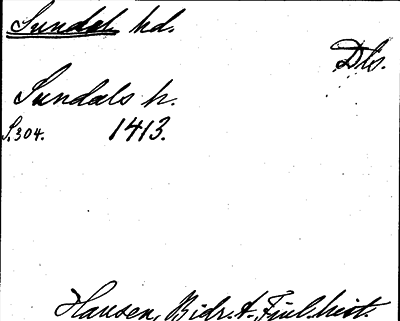 Sundal hd.
Dls.
Sundals h.
S. 304. 1413.
Hausen, Bidr. t. Finl. hist.